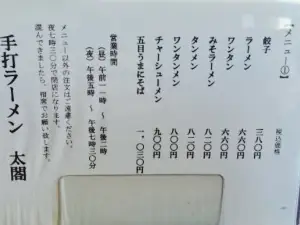 【メニュー①】
税込価格
餃子 三八〇円
ラーメン 六六〇円
ワンタン 六六〇円
みそラーメン 八〇〇円
タンメン 八〇〇円
ワンタンメン 八〇〇円
チャーシューメン 九〇〇円
五目うまにそば 一、〇三〇円
営業時間
(昼)午前一一時 ～ 午後二時
(夜)午後五時 ～ 午後七時三〇分
メニュー以外の注文はご遠慮ください。
夜七時三〇分で閉店になります。
混んできましたら、相席でお願い致します。
手打ラーメン 太閤